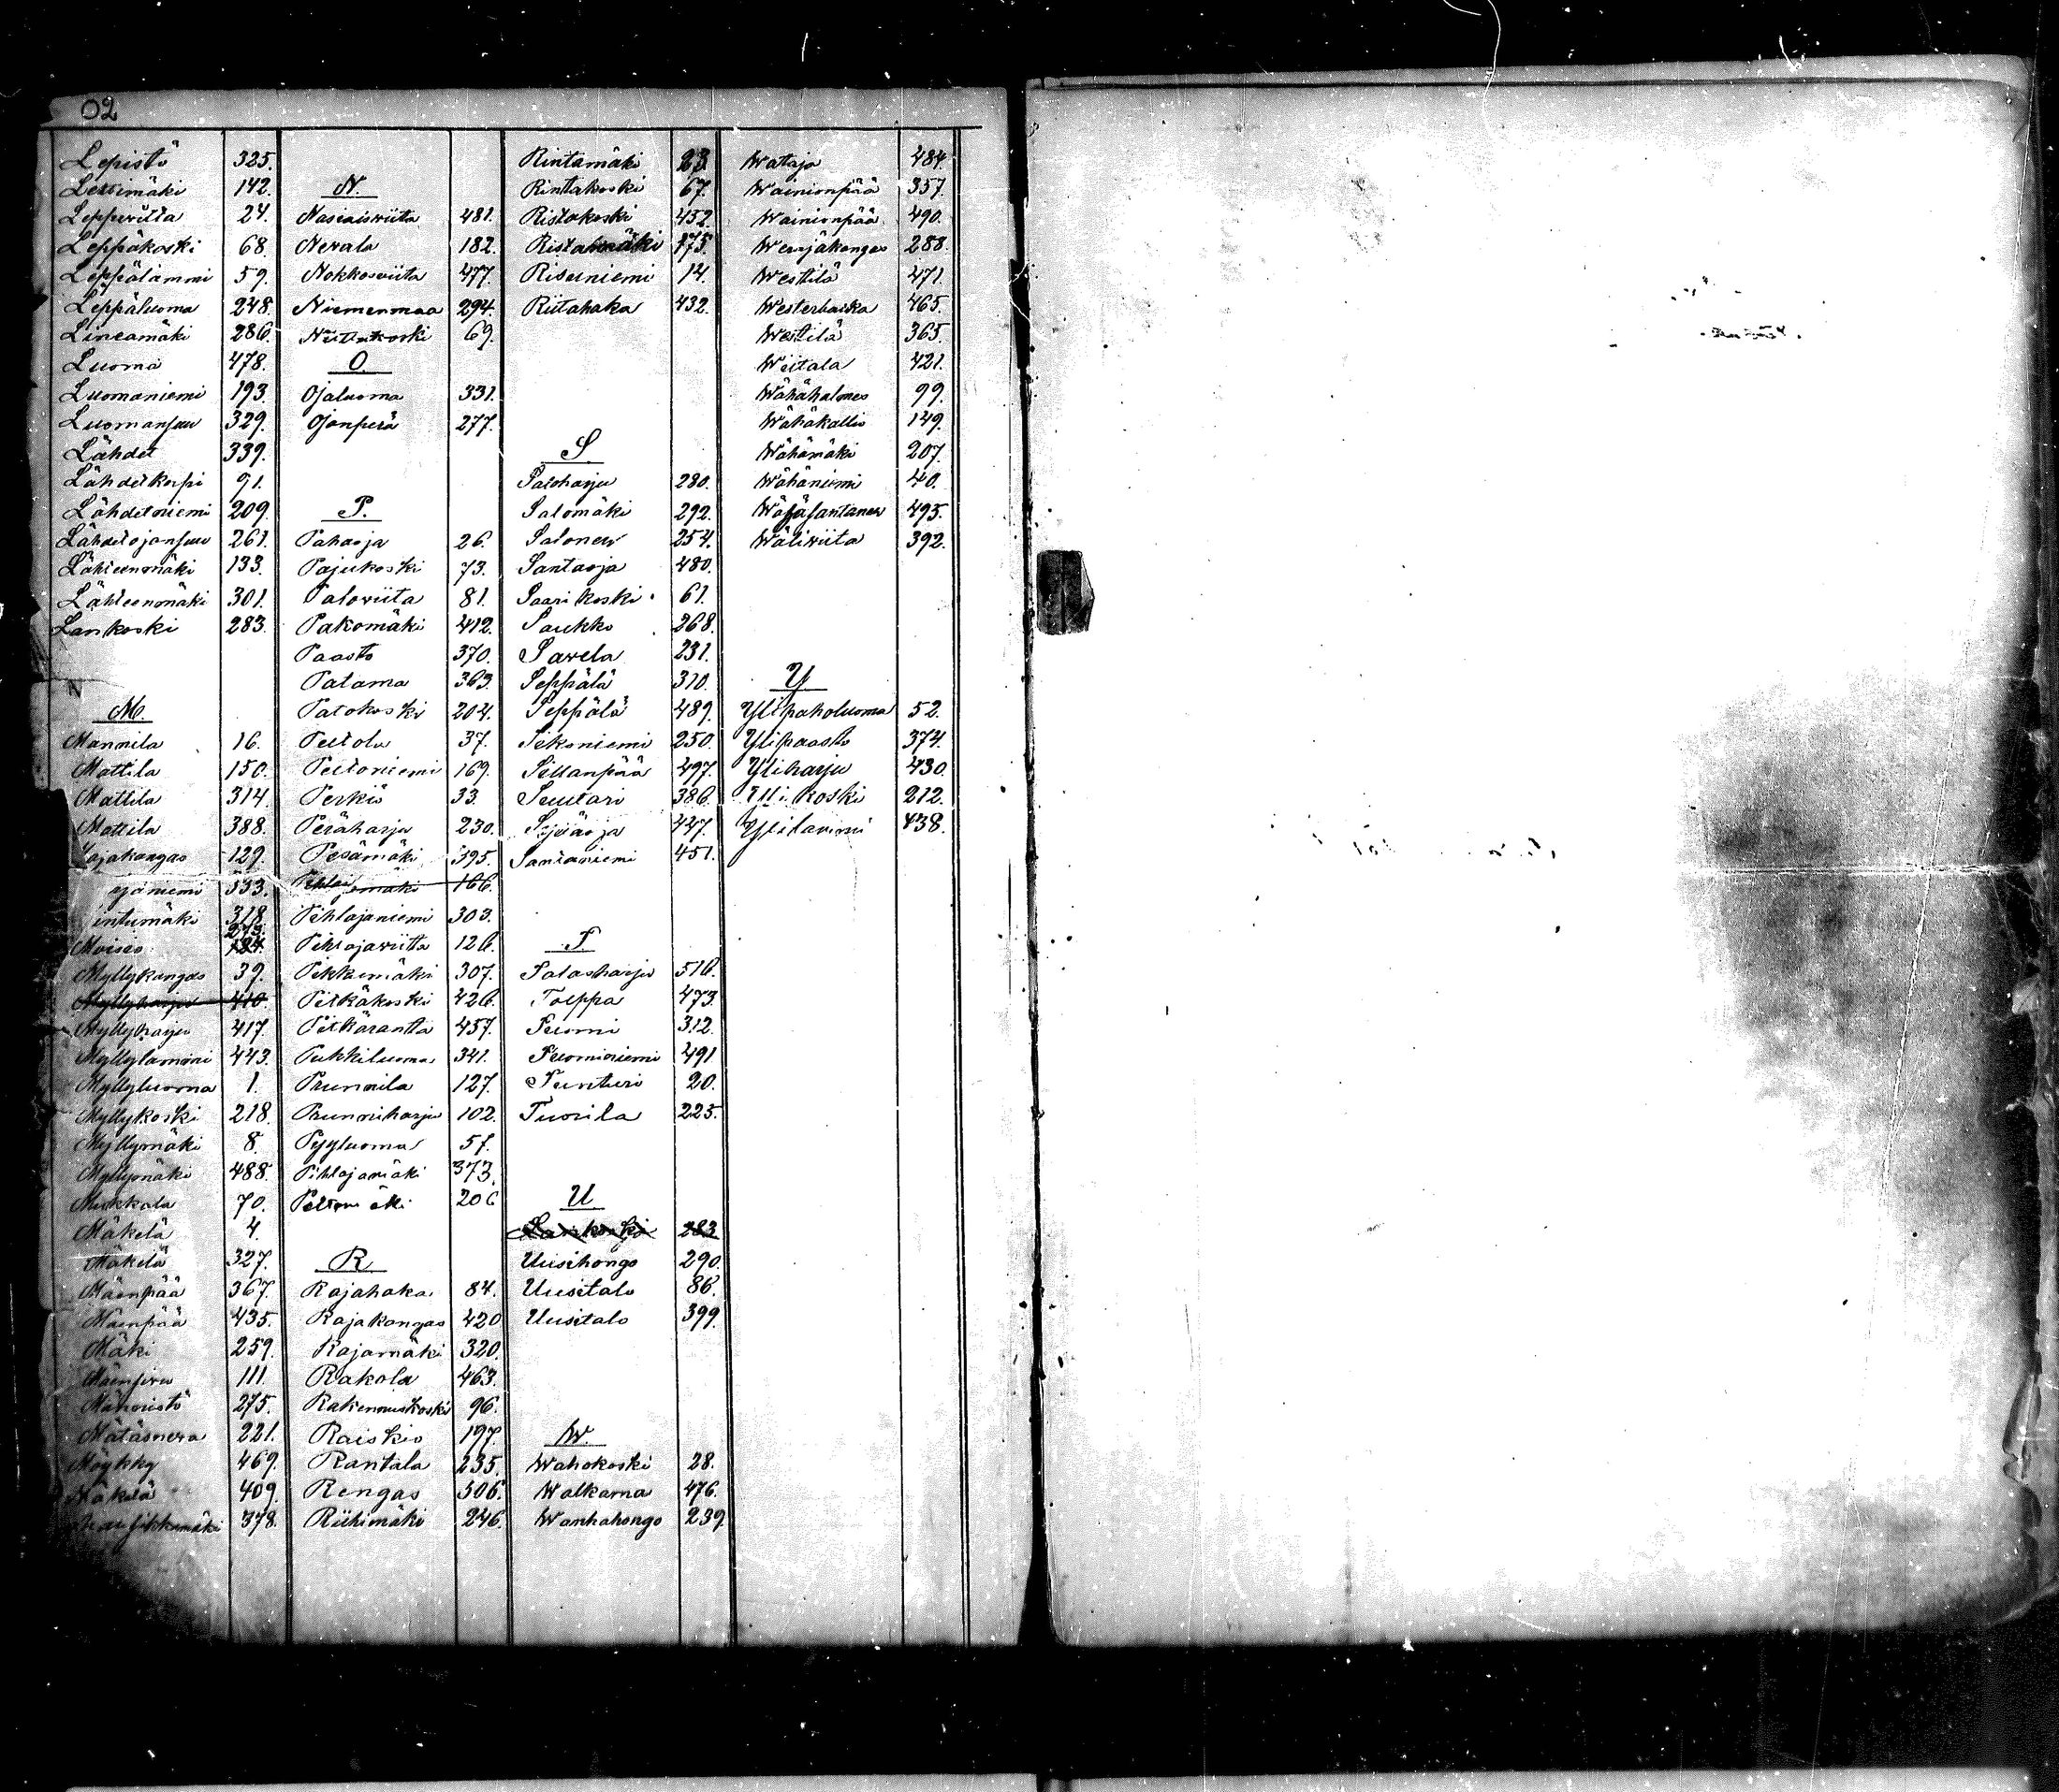 02
Lepistö 325.
Lettimäki 142.
Leppiviita 24.
Leppäkoski 68.
Leppälammi 59.
Leppäluoma 248.
Lineamäki 286.
Luoma 478.
Luomaniemi 193.
Luomansuu 329.
Lähdet 339.
Lähdetkorpi 91.
Lähdetniemi 209.
Lähdetojansuu 261.
Lähteenmäki 133.
Lähteenmäki 301.
Lankoski 283.
M.
Mannila 16.
Mattila 150.
Mattila 314.
Mattila 388.
ajakangas 129.
ajaniemi 333.
intumäki 318.
273.
Moisio 184.
Myllykangas 39.
Myllyharju 410.
Myllyharju 417.
Myllylammi 443.
Myllyluoma 1.
Myllykoski 218.
Myllymäki 8.
Myllymäki 488.
Mukkala 70.
Mäkelä 4.
Mäkelä 327.
Mäenpää 367.
Mäenpää 435.
Mäki 259.
Mäensivu 111.
Männistö 275.
Mätäsneva 221.
Möykky 469.
Mäkelä 409.
378.
N.
481.
Nevala 182.
Nokkosviita 477.
Niemenmaa 294.
Niittukoski 69.
O.
Ojaluoma 331.
Ojanperä 277.
P.
Pahaoja 26.
Pajukoski 73.
Paloviita 81.
Pakomäki 412.
Paasto 370.
Patama 363.
Patokoski 204.
Peltola 37.
Peltoniemi 169.
Perkiö 33.
Peräharju 230.
Pesämäki 395.
Pihlajamäki 166.
Pihlajaniemi 303.
Pihlajaviita 126.
Pikkumäki 307.
Pitkäkoski 426.
Pitkäranta 457.
Pukkiluoma 341.
Prunnila 127.
Prunniharju 102.
Pyyluoma 51.
Pihlajamäki 373.
Peltomäki 206
R
Rajahaka 84.
Rajakangas 420
Rajamäki 320.
Rakola 463.
Rakennuskoski 96.
Raiskio 197.
Rantala 235.
Rengas 306.
Riihimäki 246.
Rintamäki 23
Rintakoski 67.
Ristakoski 452.
Ristamäki 175.
Risuniemi 14.
Riitahaka 432.
S.
Saloharju 280.
Salomäki 292.
Salonen 254.
Santaoja 480.
Saarikoski 61.
Saukko 268.
Savela 231.
Seppälä 310.
Seppälä 489.
Sikoniemi 250.
Sillanpää 497.
Suutari 386.
Syväoja 427.
Santaniemi 451.
T.
Talasharju 516.
Toppa 473.
Tuomi 312.
Tuominiemi 491
Tunturi 20.
Tuorila 225.
U
Lankoski 283
Uusihongo 290.
Uusitalo 86.
Uusitalo 399.
W.
Wahokoski 28.
Walkama 476.
Wanhahongo 239.
Wataja 484.
Wainionpää 357.
Wainionpää 490.
Werajäkangas 288.
Westilä 471.
Westerbacka 465.
Westilä 365.
Wiitala 421.
Wähähalmes 99.
Wähäkallio 149.
Wähämäki 207.
Wähäniemi 40.
495.
Wäliviita 392.
Y
Ylipaholuoma 52.
Ylipaasto 374.
Yliharju 430.
Ylikoski 212.
Ylilammi 438.